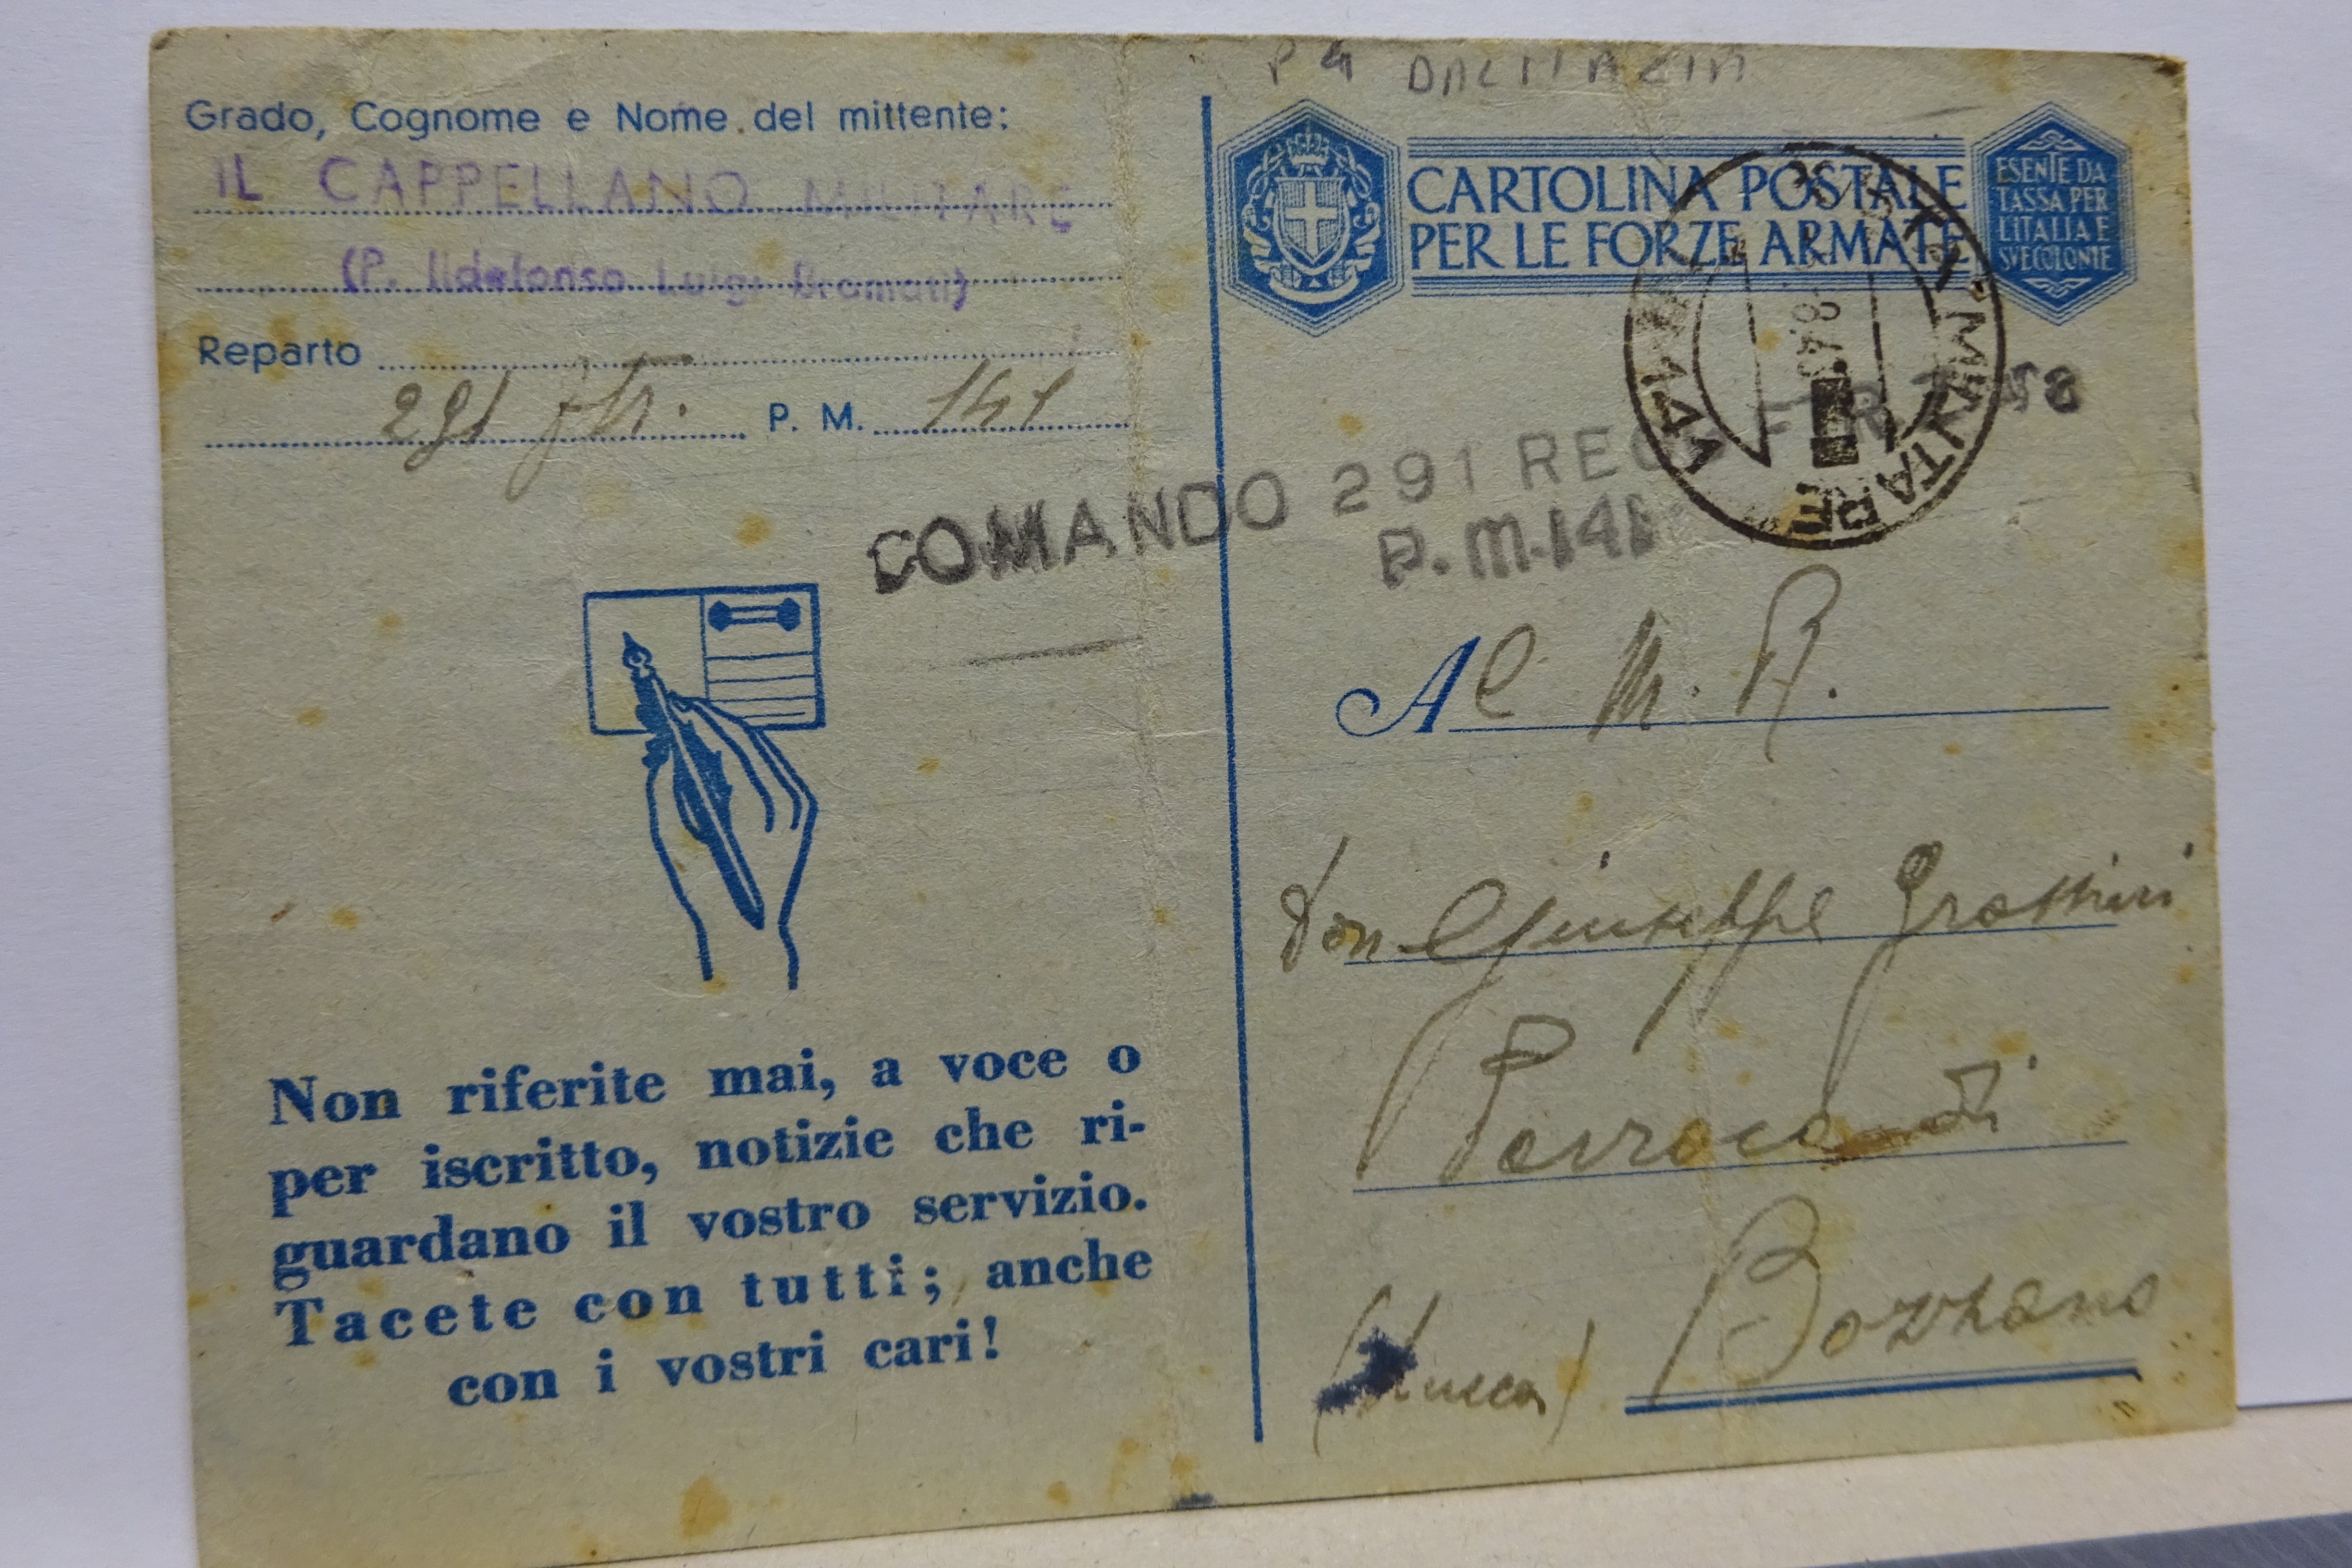 P 4 DALMAZIA
Grado, Cognome e Nome del mittente:
IL CAPPELLANO MILITARE
(P. Ildefonso Luigi Bramati)
Reparto
291 ftr. P. M. 141
CARTOLINA POSTALE
PER LE FORZE ARMATE
ESENTE DA
TASSA PER
L'ITALIA E
SUE COLONIE
POSTA MILITARE
141
COMANDO 291 REG
P.M.141
Al M. R.
Don Giuseppe
Parroco di
Bozzano
(Lucca)
Non riferite mai, a voce o
per iscritto, notizie che ri-
guardano il vostro servizio.
Tacete con tutti; anche
con i vostri cari!